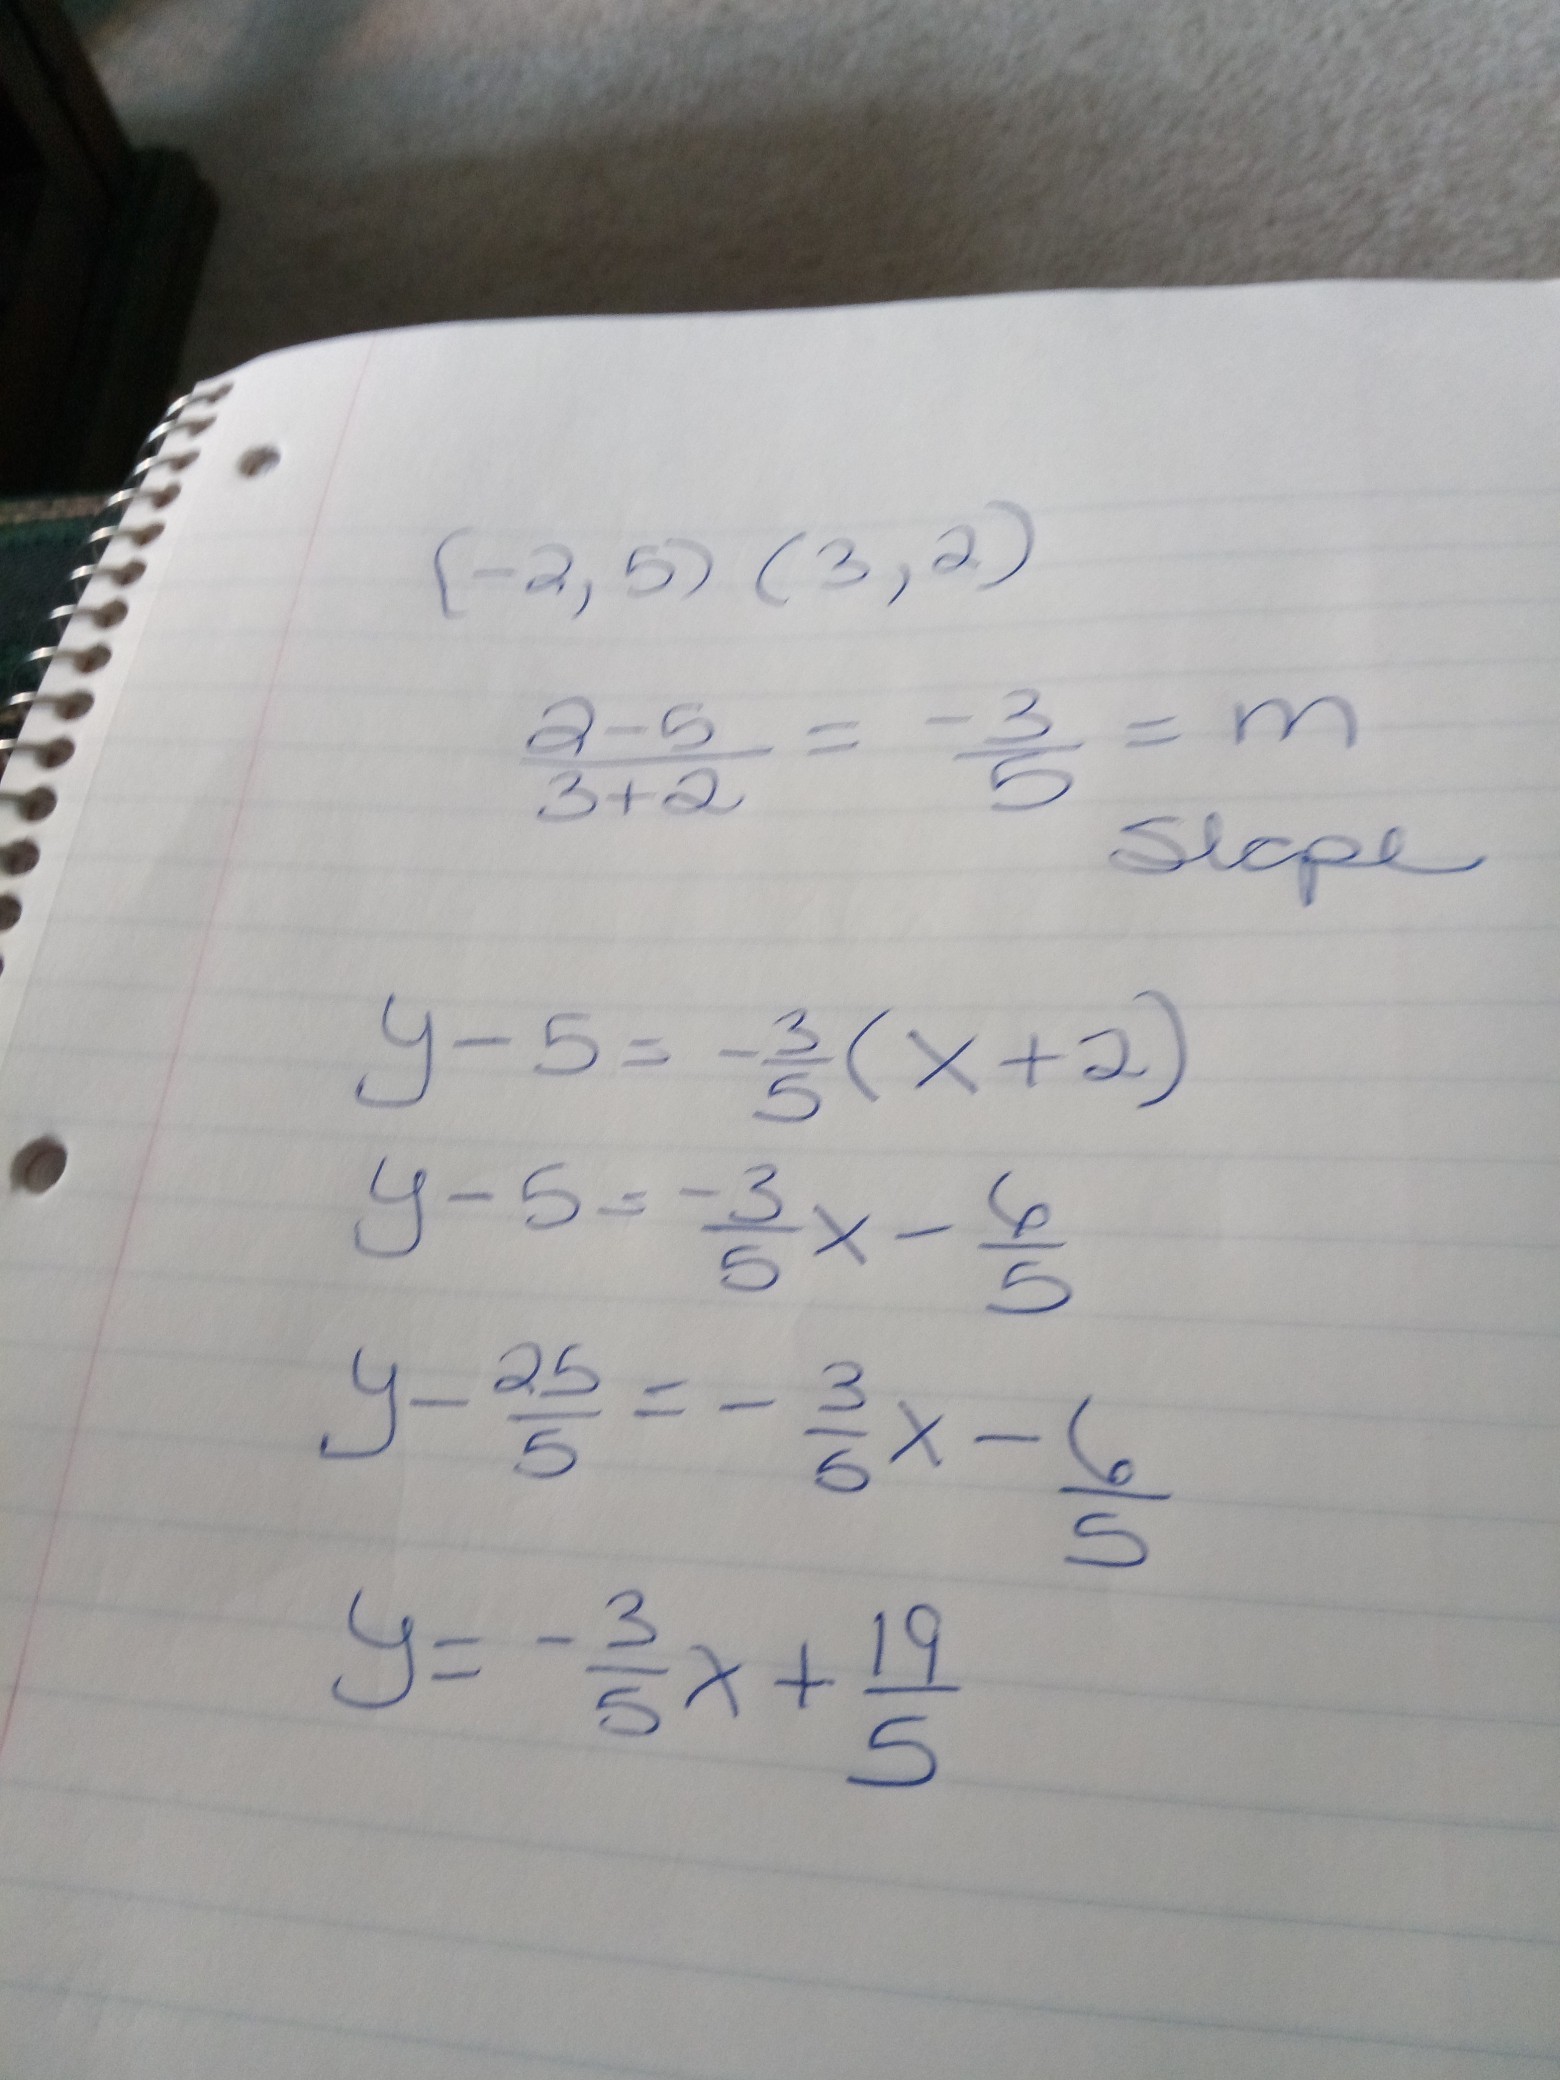 (-2, 5) (3, 2)
2-5/3+2 = -3/5 = m
Slope
y - 5 = -3/5 (x + 2)
y - 5 = -3/5 x - 6/5
y - 25/5 = - 3/5 x - 6/5
y = - 3/5 x + 19/5